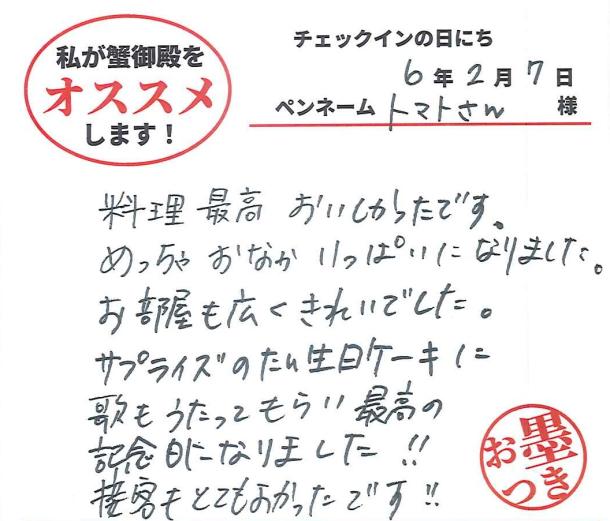 私が蟹御殿を
オススメ
します！
チェックインの日にち
6年2月7日
ペンネーム トマトさん 様
料理 最高 おいしかったです。
めっちゃ おなか いっぱいに なりました。
お部屋も広くきれいでした。
サプライズのたん生日ケーキに
歌もうたってもらい 最高の
記念日になりました!!
接客もとてもよかったです!!
お墨
つき